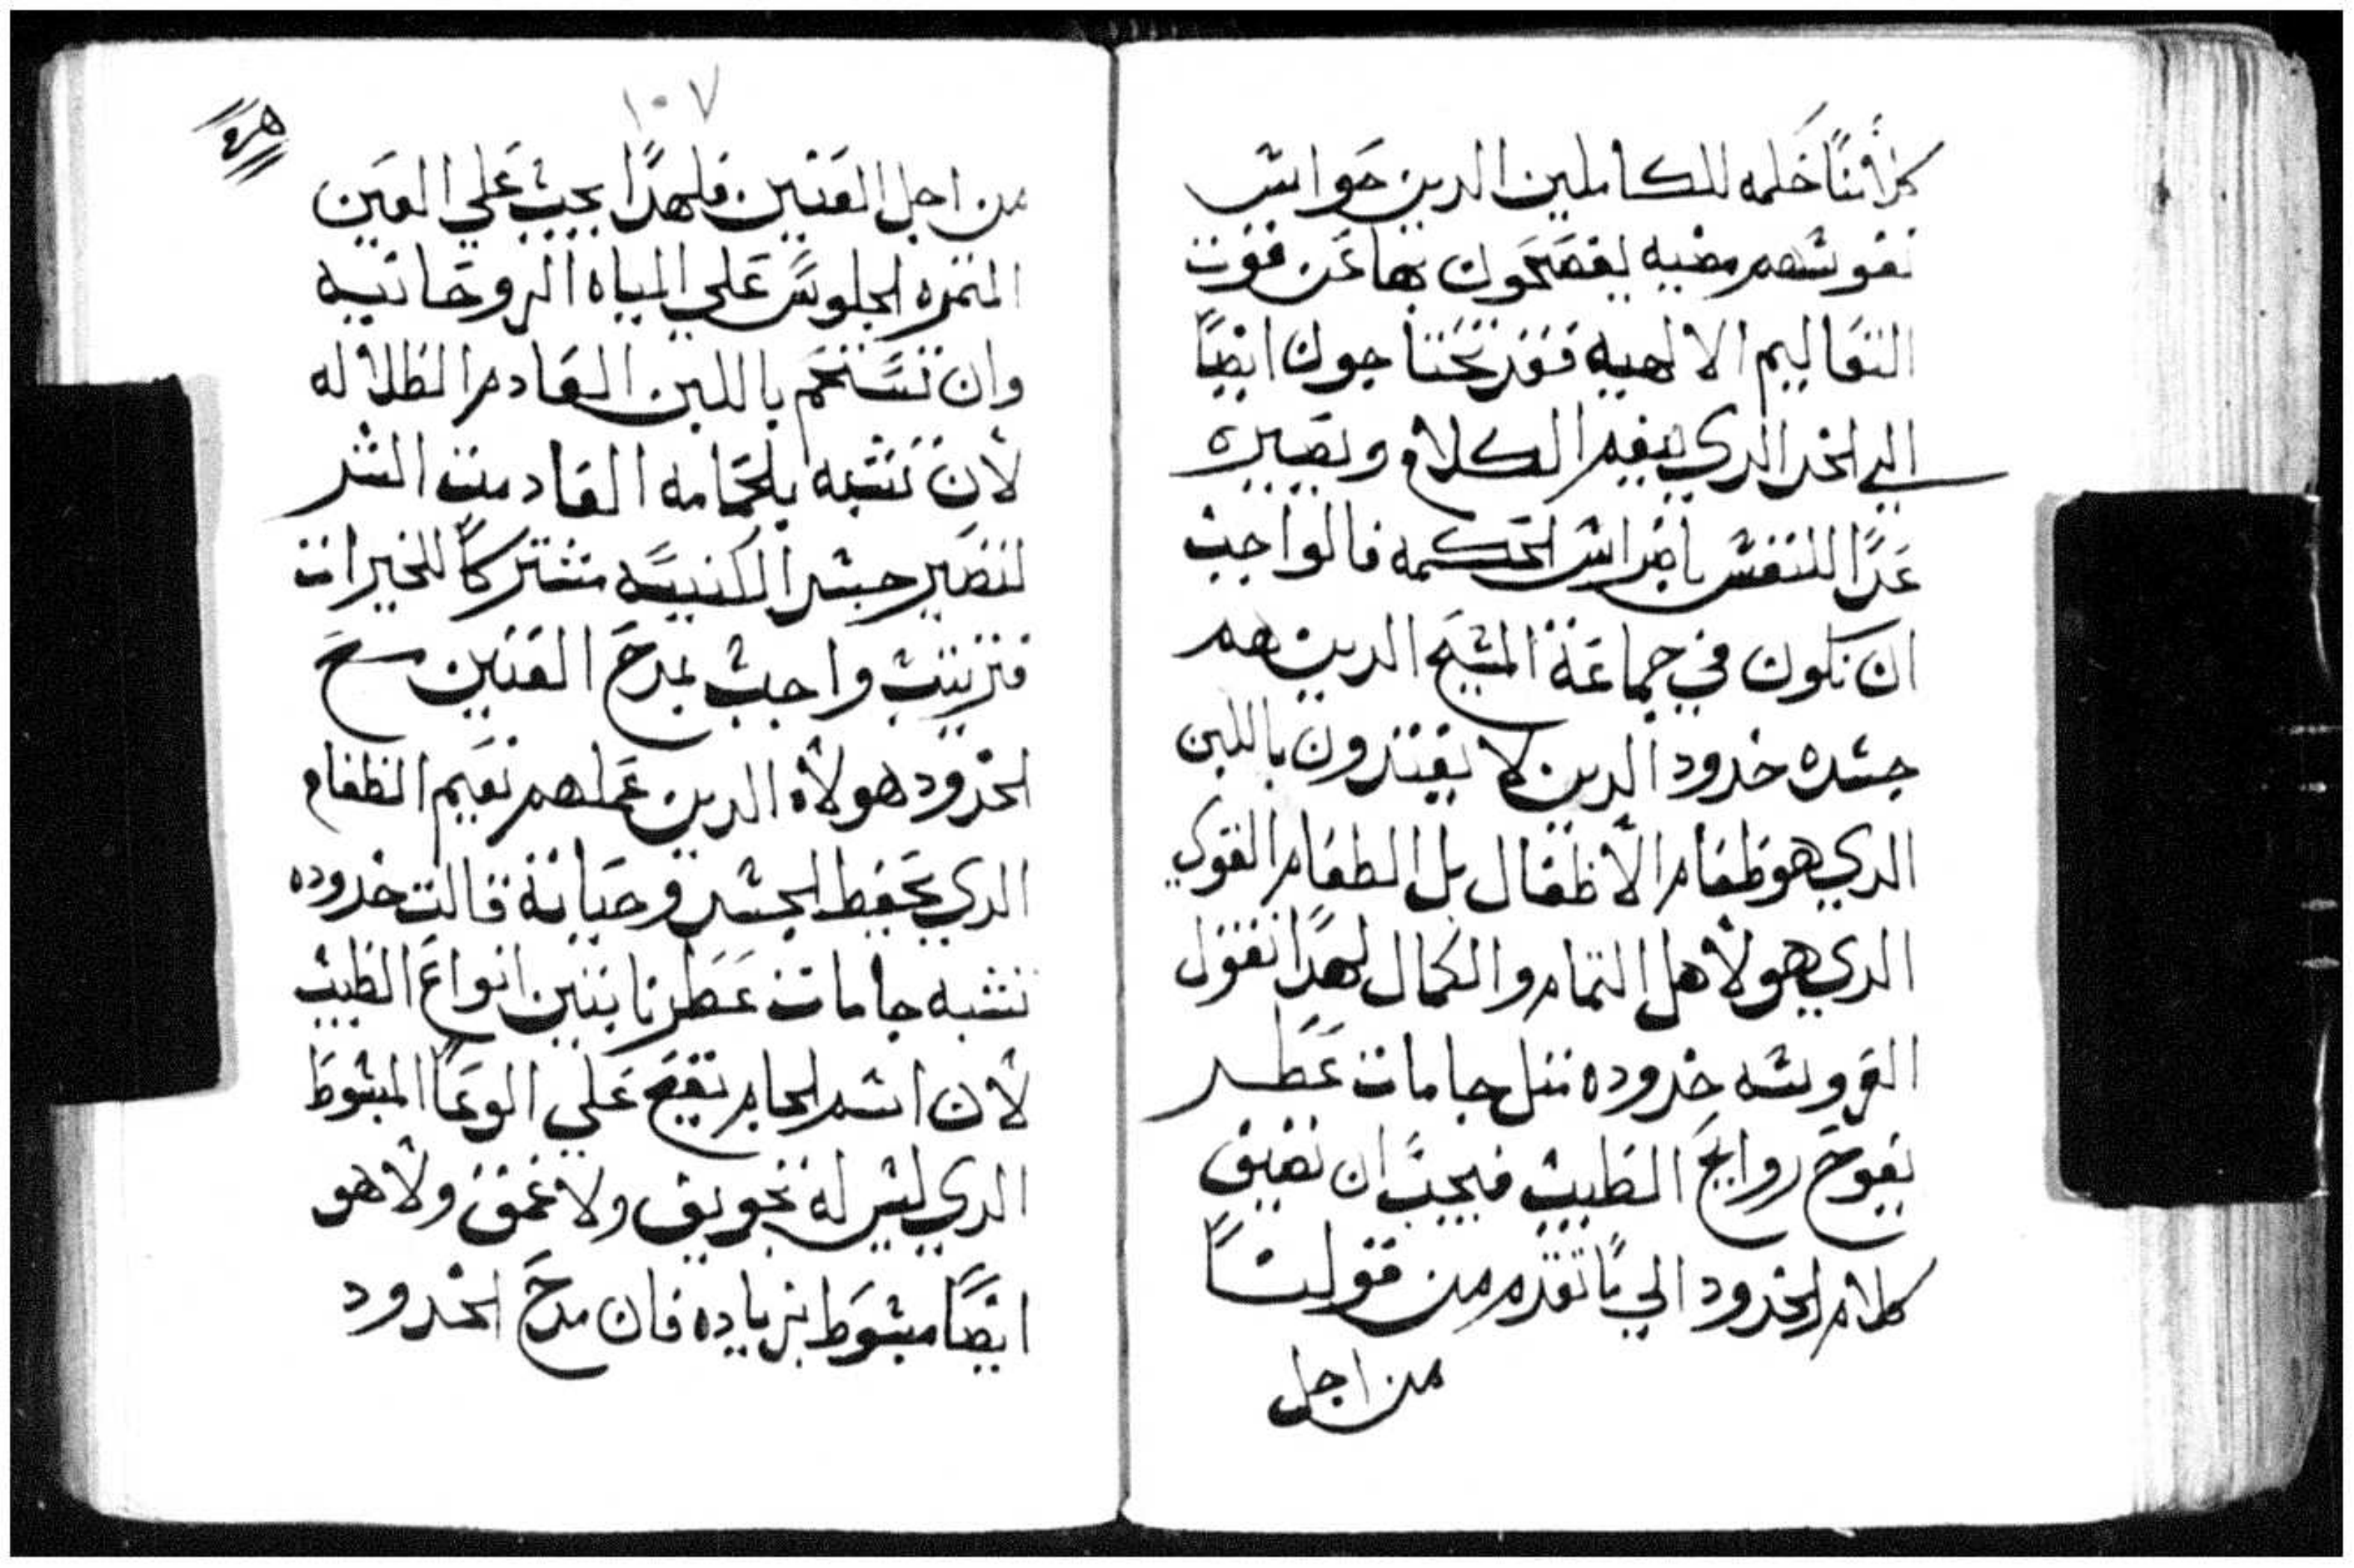 كلامنا خلمه للكاملين الدين حواس
نفوسهم مضيه يفصحون بها عن قوت
التعاليم الالهيه فقد تحتاجون ايضًا
الي الخد الدي ينعم الكلام ويصيره
غدًا للنفس باضراس الحكمه فالواجب
ان نكون في جماعة المسيح الدين هم
جسده خدود الدين لا يغتدون باللبن
الدي هو طعام الاطفال بل الطعام القوي
الدي هو لاهل التمام والكمال لهدا نقول
العروسه خدوده مثل جامات عطر
يفوح روايح الطيب فيجب ان نضيف
كلام الخدود الي ما تقدم من قولنا
من اجل
١٠٧
من اجل العينين فلهدا يجب علي العين
المتمره الجلوس علي المياه الروحانيه
وان تستحم باللبن العادم الظلاله
لان تتشبه بالحمامه العادمت الشر
لتصير جسد الكنيسه مشتركا للخيرات
فترتيب واجب بمدح العينين مدح
الخدود هولاء الدين عملهم تنعيم الطعام
الدي يحفظ الجسد وحياته قالت خدوده
تشبه جامات عطر نابتين انواع الطيب
لان اسم الجام يقع علي الوعا المبسوط
الدي ليس له تجويف ولا عمق ولا هو
ايضًا مبسوط بزياده فان مدح الخدود